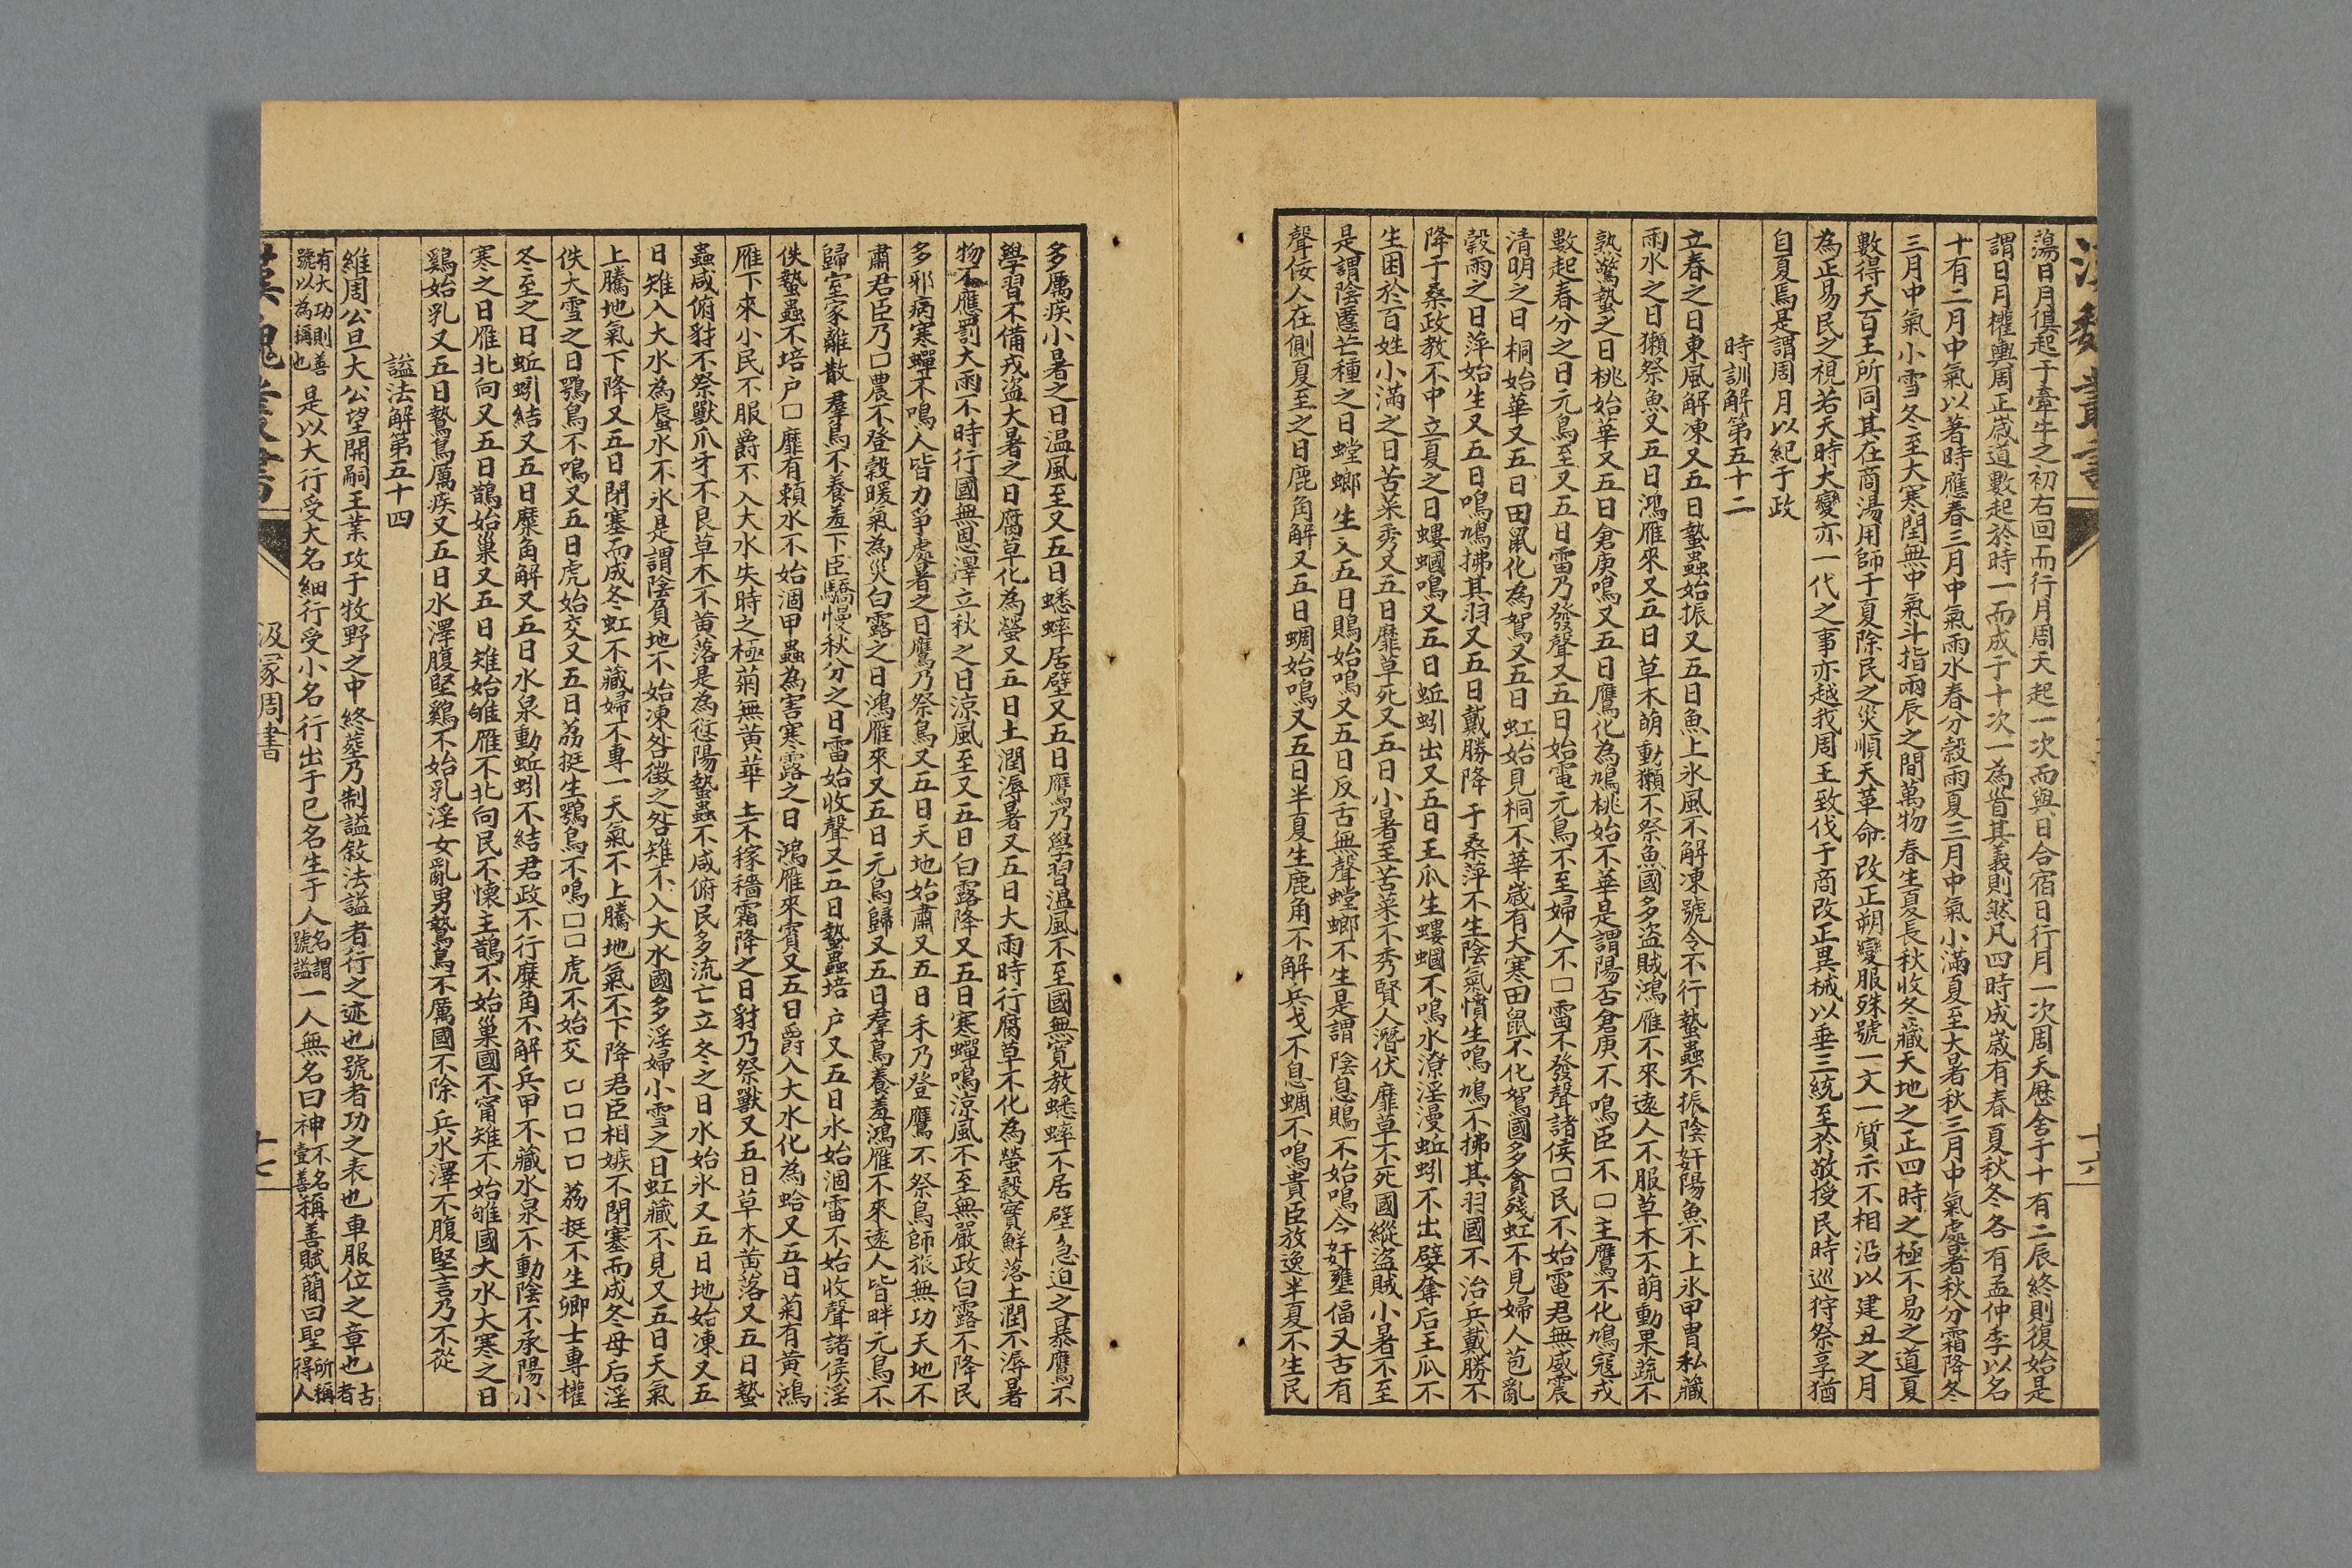 漢魏叢書
十六
蕩日月俱起于牽牛之初右回而行月周天起一次而與日合宿日行月一次周天歷舍于十有二辰終則復始是
謂日月權輿周正歲道數起於時一而成于十次一為首其義則然凡四時成歲有春夏秋冬各有孟仲季以名
十有二月中氣以著時應春三月中氣雨水春分穀雨夏三月中氣小滿夏至大暑秋三月中氣處暑秋分霜降冬
三月中氣小雪冬至大寒閏無中氣斗指兩辰之間萬物春生夏長秋收冬藏天地之正四時之極不易之道夏
數得天百王所同其在商湯用師于夏除民之災順天革命改正朔變服殊號一文一質示不相沿以建丑之月
為正易民之視若天時大變亦一代之事亦越我周王致伐于商改正異械以垂三統至於敬授民時巡狩祭享猶
自夏焉是謂周月以紀于政
時訓解第五十二
立春之日東風解凍又五日蟄蟲始振又五日魚上氷風不解凍號令不行蟄蟲不振陰奸陽魚不上氷甲胄私藏
雨水之日獺祭魚又五日鴻雁來又五日草木萌動獺不祭魚國多盜賊鴻雁不來遠人不服草木不萌動果蔬不
熟驚蟄之日桃始華又五日倉庚鳴又五日鷹化為鳩桃始不華是謂陽否倉庚不鳴臣不□主鷹不化鳩寇戎
數起春分之日元鳥至又五日雷乃發聲又五日始電元鳥不至婦人不□雷不發聲諸侯□民不始電君無威震
清明之日桐始華又五日田鼠化為鴽又五日虹始見桐不華歲有大寒田鼠不化鴽國多貪殘虹不見婦人苞亂
穀雨之日萍始生又五日鳴鳩拂其羽又五日戴勝降于桑萍不生陰氣憤生鳴鳩不拂其羽國不治兵戴勝不
降于桑政教不中立夏之日螻蟈鳴又五日蚯蚓出又五日王瓜生螻蟈不鳴水潦淫漫蚯蚓不出嬖奪后王瓜不
生困於百姓小滿之日苦菜秀又五日靡草死又五日小暑至苦菜不秀賢人潛伏靡草不死國縱盜賊小暑不至
是謂陰慝芒種之日螳螂生又五日鵙始鳴又五日反舌無聲螳螂不生是謂陰息鵙不始鳴令奸壅偪又舌有
聲佞人在側夏至之日鹿角解又五日蜩始鳴又五日半夏生鹿角不解兵戈不息蜩不鳴貴臣放逸半夏不生民
多厲疾小暑之日温風至又五日蟋蟀居壁又五日鷹乃學習温風不至國無寬教蟋蟀不居壁急迫之暴鷹不
學習不備戎盜大暑之日腐草化為螢又五日土潤溽暑又五日大雨時行腐草不化為螢穀實鮮落土潤不溽暑
物不應罰大雨不時行國無恩澤立秋之日涼風至又五日白露降又五日寒蟬鳴涼風不至無嚴政白露不降民
多邪病寒蟬不鳴人皆力爭處暑之日鷹乃祭鳥又五日天地始肅又五日禾乃登鷹不祭鳥師旅無功天地不
肅君臣乃□農不登穀暖氣為災白露之日鴻雁來又五日元鳥歸又五日羣鳥養羞鴻雁不來遠人皆畔元鳥不
歸室家離散羣鳥不養羞下臣驕慢秋分之日雷始收聲又五日蟄蟲培户又五日水始涸雷不始收聲諸侯淫
佚蟄蟲不培户□靡有賴水不始涸甲蟲為害寒露之日鴻雁來賓又五日爵入大水化為蛤又五日菊有黃鴻
雁下來小民不服爵不入大水失時之極菊無黃華土不稼穡霜降之日豺乃祭獸又五日草木黃落又五日蟄
蟲咸俯豺不祭獸爪牙不良草木不黃落是為愆陽蟄蟲不咸俯民多流亡立冬之日水始氷又五日地始凍又五
日雉入大水為蜃水不氷是謂陰負地不始凍咎徵之咎雉不入大水國多淫婦小雪之日虹藏不見又五日天氣
上騰地氣下降又五日閉塞而成冬虹不藏婦不專一天氣不上騰地氣不下降君臣相嫉不閉塞而成冬母后淫
佚大雪之日鶚鳥不鳴又五日虎始交又五日荔挺生鶚鳥不鳴□□虎不始交□□□□荔挺不生卿士專權
冬至之日蚯蚓結又五日麋角解又五日水泉動蚯蚓不結君政不行麋角不解兵甲不藏水泉不動陰不承陽小
寒之日雁北向又五日鵲始巢又五日雉始雊雁不北向民不懷主鵲不始巢國不甯雉不始雊國大水大寒之日
鷄始乳又五日鷙鳥厲疾又五日水澤腹堅鷄不始乳淫女亂男鷙鳥不厲國不除兵水澤不腹堅言乃不從
謚法解第五十四
維周公旦大公望開嗣王業攻于牧野之中終葬乃制謚敘法謚者行之迹也號者功之表也車服位之章也古者
有大功則善號以為稱也是以大行受大名細行受小名行出于已名生于人名謂號謚一人無名曰神不名壹善稱善賦簡曰聖所稱得人
漢魏叢書
汲冢周書
十七